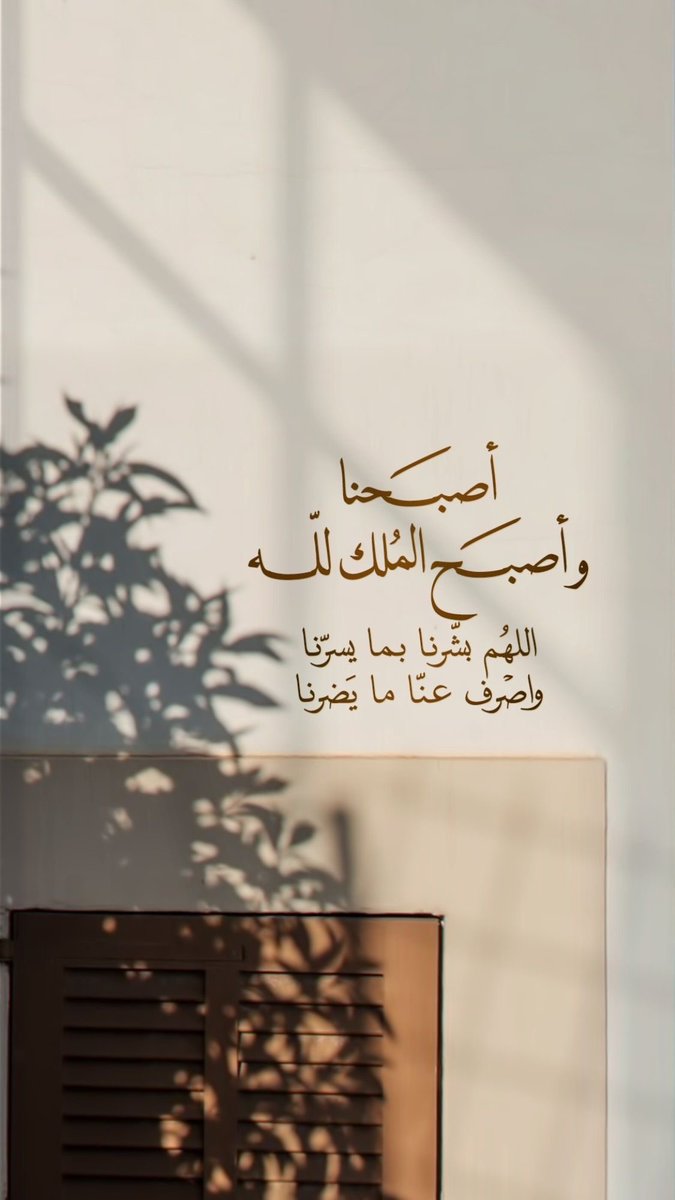 أصبَحنا
وأصبَح المُلك للّه
اللهُم بشّرنا بما يسرّنا
واصْرف عنّا ما يَضرنا